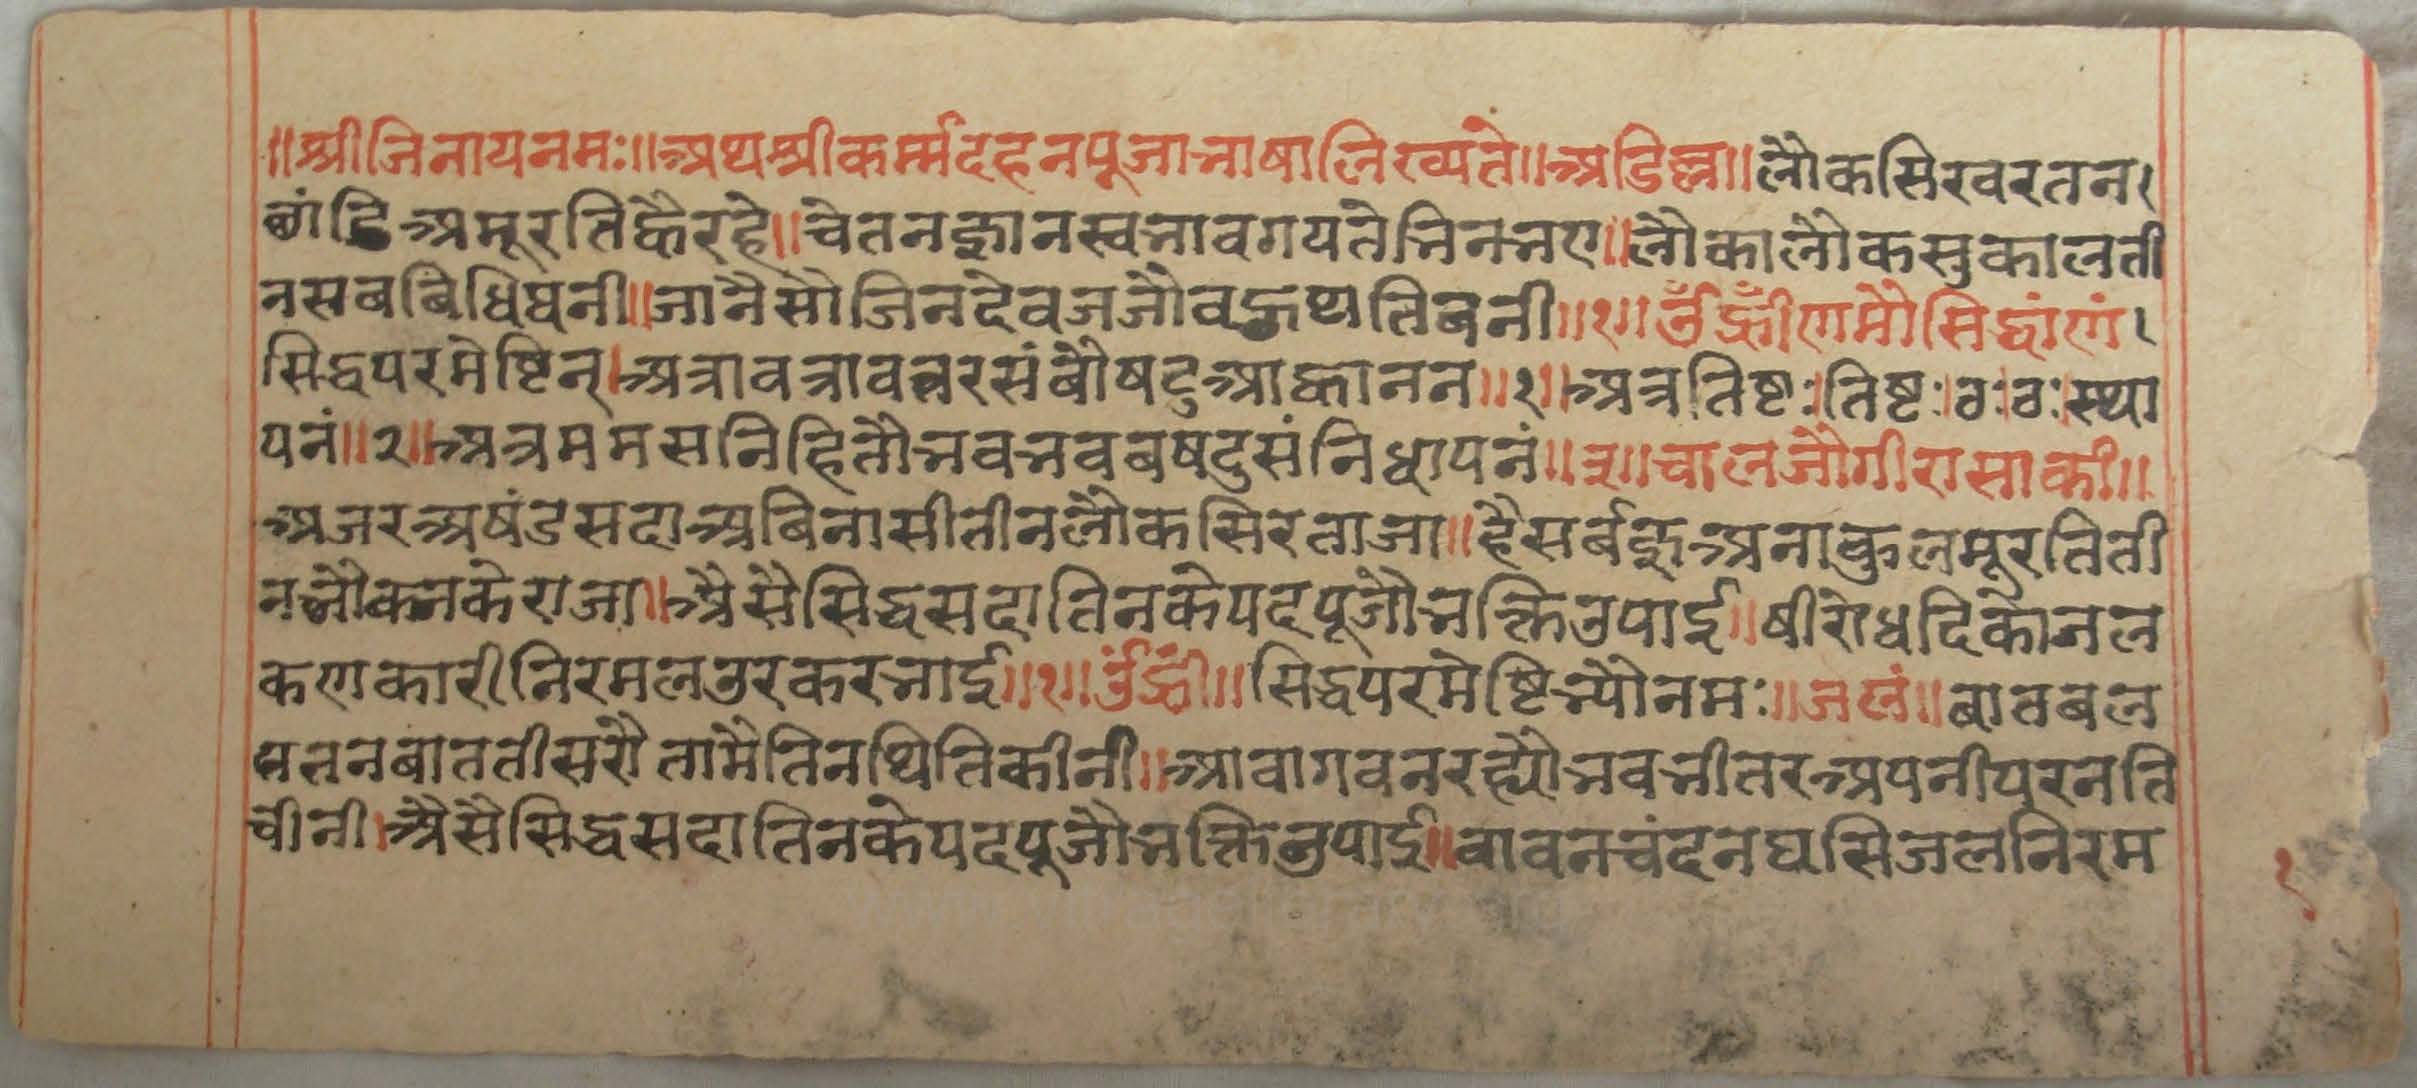 ॥श्रीजिनायनमः॥अथश्रीकर्म्मदहनपूजाभाषालिख्यते॥अडिल्ल॥लोकसिखरतन।
छांडिअमूरतिह्वैरहे॥चेतनज्ञानस्वभावगयतेभिनभए॥लोकालोकसुकालती
नसबबिधिघनी॥जानैसोजिनदेवजजौंवहुथुतिबनी॥१॥ॐह्रींणमोसिद्धांणं।
सिद्धपरमेष्टिन्।अत्रावत्रावत्तरसंबौषट्आह्वाननन॥१॥अत्रतिष्टः।तिष्टः।ठः।ठः।स्था
पनं॥२॥अत्रममसनिहितोभवभवबषट्संनिधापनं॥३॥चालजोगीरासाकी॥
अजरअषंडसदाअबिनासीतीनलोकसिरताजा॥हैसर्बज्ञअनाकुलमूरतिती
नलोकनकेराजा॥अैसैसिद्धसदातिनकेपदपूजौंभक्तिउपाई॥षीरोधदिकौजल
कणकारीनिरमलउरकरभाई॥१॥ॐह्रीं॥सिद्धपरमेष्टिभ्योनमः॥जलं॥बातबल
घतनबाततीसरौतामैतिनथितिकीनी॥आवागवनरह्योभवभीतरअपनीपरनति
चीनी।अैसैसिद्धसदातिनकेपदपूजौभक्तिउपाई॥बावनचंदनघसिजलनिरम
१